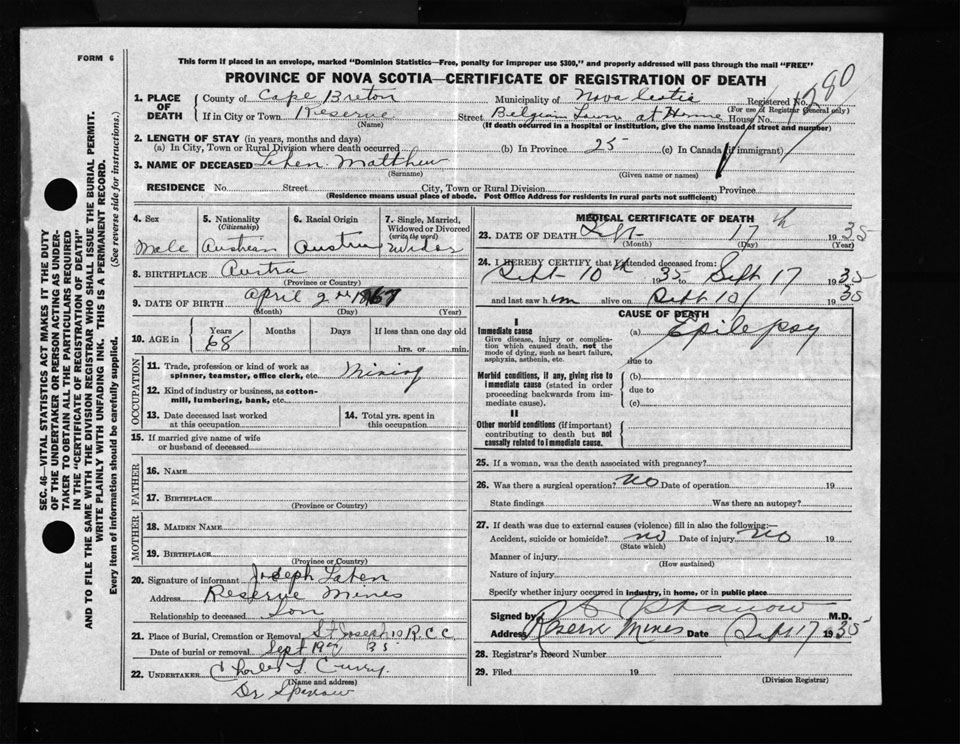 FORM 6
This form if placed in an envelope, marked "Dominion Statistics—Free, penalty for improper use $300," and properly addressed will pass through the mail "FREE"
PROVINCE OF NOVA SCOTIA—CERTIFICATE OF REGISTRATION OF DEATH
1. PLACE OF DEATH
County of Cape Breton Municipality of Nova Scotia Registered No.
(For use of Registrar General only)
If in City or Town Reserve Street Belgian Town at Home House No.
(Name) (If death occurred in a hospital or institution, give the name instead of street and number)
2. LENGTH OF STAY (in years, months and days)
(a) In City, Town or Rural Division where death occurred (b) In Province 25 (c) In Canada (if immigrant)
3. NAME OF DECEASED Laben Matthew
(Surname) (Given name or names)
RESIDENCE No. Street City, Town or Rural Division Province
(Residence means usual place of abode. Post Office Address for residents in rural parts not sufficient)
SEC. 46—VITAL STATISTICS ACT MAKES IT THE DUTY
OF THE UNDERTAKER OR PERSON ACTING AS UNDER-
TAKER TO OBTAIN ALL THE PARTICULARS REQUIRED
IN THE "CERTIFICATE OF REGISTRATION OF DEATH"
AND TO FILE THE SAME WITH THE DIVISION REGISTRAR WHO SHALL ISSUE THE BURIAL PERMIT.
WRITE PLAINLY WITH UNFADING INK. THIS IS A PERMANENT RECORD.
Every item of information should be carefully supplied. (See reverse side for instructions.)
4. Sex 5. Nationality (Citizenship) 6. Racial Origin 7. Single, Married, Widowed or Divorced (write the word)
Male Austrian Austrian Widor
8. BIRTHPLACE Austria
(Province or Country)
9. DATE OF BIRTH April 2nd 1867
(Month) (Day) (Year)
10. AGE in Years Months Days If less than one day old
68 hrs. or min.
OCCUPATION
11. Trade, profession or kind of work as spinner, teamster, office clerk, etc. Mining
12. Kind of industry or business, as cotton-mill, lumbering, bank, etc.
13. Date deceased last worked at this occupation
14. Total yrs. spent in this occupation
15. If married give name of wife or husband of deceased
FATHER
16. NAME
17. BIRTHPLACE
(Province or Country)
MOTHER
18. MAIDEN NAME
19. BIRTHPLACE
(Province or Country)
20. Signature of informant Joseph Laben
Address Reserve Mines
Relationship to deceased Son
21. Place of Burial, Cremation or Removal St Joseph R.C.C.
Date of burial or removal Sept 19th 35
22. UNDERTAKER Charles L Curry
(Name and address)
Dr Sparrow
MEDICAL CERTIFICATE OF DEATH
23. DATE OF DEATH Sept 17th 1935
(Month) (Day) (Year)
24. I HEREBY CERTIFY that I attended deceased from:
Sept 10th 1935 Sept 17 1935
and last saw him alive on Sept 10 1935
CAUSE OF DEATH
I
Immediate cause (a) Epilepsy
Give disease, injury or complication which caused death, not the mode of dying, such as heart failure, asphyxia, asthenia, etc.
due to
Morbid conditions, if any, giving rise to immediate cause (stated in order proceeding backwards from immediate cause).
(b)
due to
(c)
II
Other morbid conditions (if important) contributing to death but not causally related to immediate cause.
25. If a woman, was the death associated with pregnancy?
26. Was there a surgical operation? no Date of operation 19
State findings Was there an autopsy?
27. If death was due to external causes (violence) fill in also the following:—
Accident, suicide or homicide? no Date of injury no 19
(State which)
Manner of injury
(How sustained)
Nature of injury
Specify whether injury occurred in industry, in home, or in public place
Signed by Sparrow M.D.
Address Reserve Mines Date Sept 17 1935
28. Registrar's Record Number
29. Filed 19
(Division Registrar)